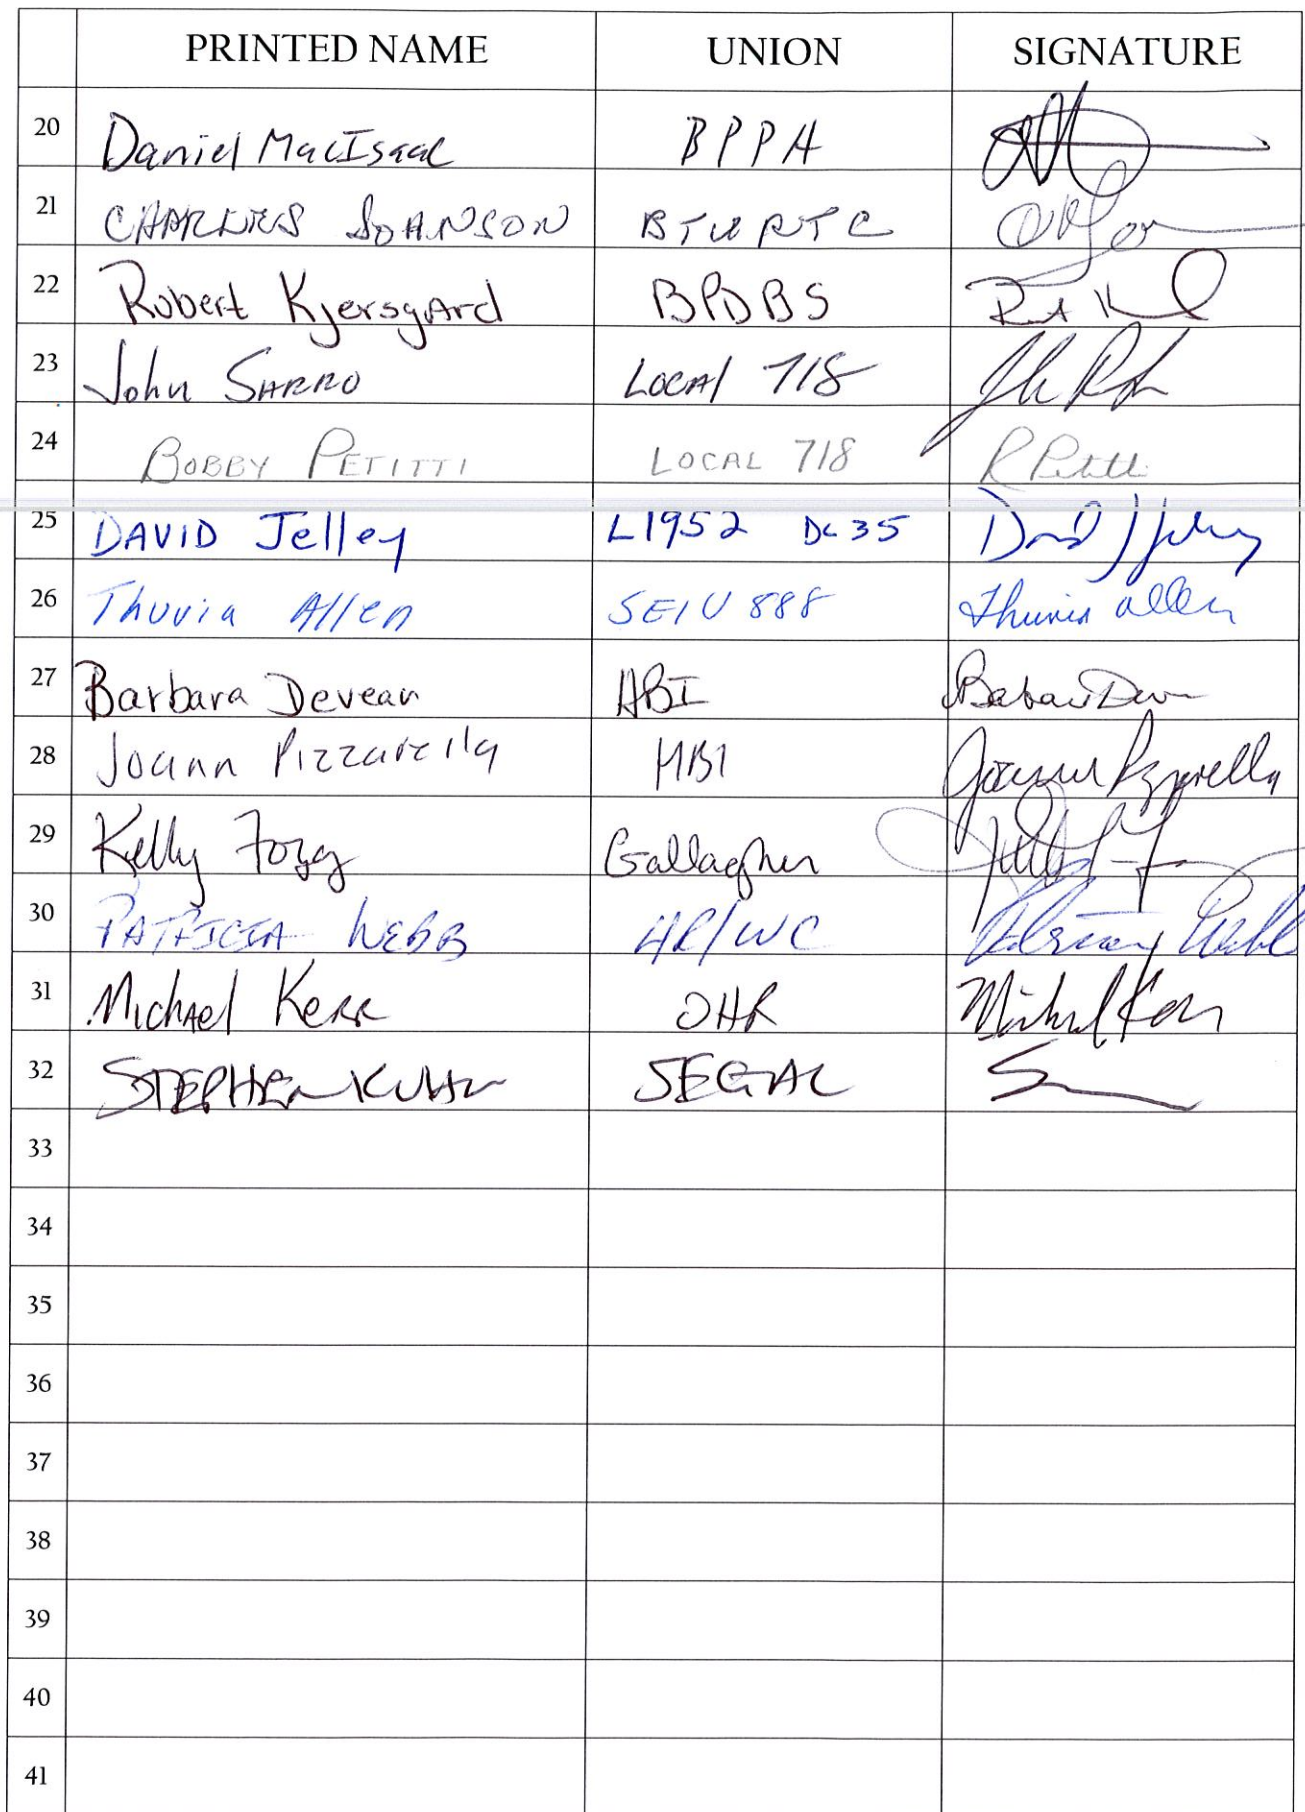 PRINTED NAME UNION SIGNATURE
20 Daniel MacIsaac BPPA
21 CHARLES JOHNSON BTU RTC
22 Robert Kjersgard BPDBS
23 John SARRO LOCAL 718
24 BOBBY PETITTI LOCAL 718 R Petitti
25 DAVID Jelley L1952 DC 35
26 Thuvia Allen SEIU 888 Thuvia Allen
27 Barbara Deveau
28 Joann Pizzarella Joann Pizzarella
29 Kelly Fogg Gallagher
30 PATRICIA WEBB HR/WC Webb
31 Michael Kerr OHR Michael Kerr
32 STEPHEN KUHN SEGAL
33
34
35
36
37
38
39
40
41